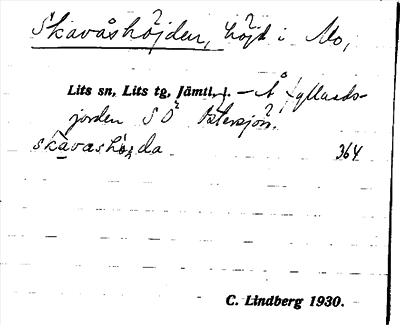 Skavåshöjden, höjd i Mo,
Lits sn, Lits tg, Jämtl. l. — Å
jorden SO Östersjön.
skavashöɟda 364
C. Lindberg 1930.